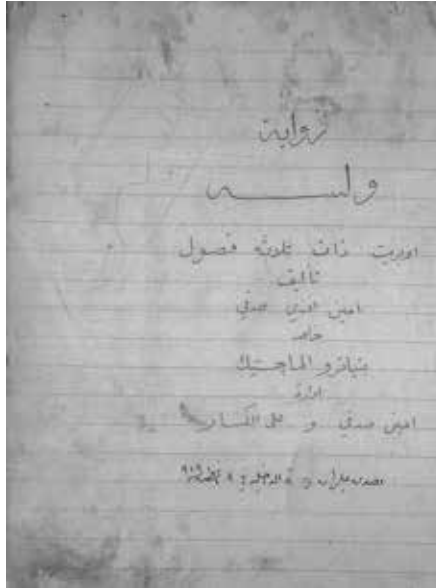 رواية
ولسه
اوبريت ذات ثلاثة فصول
تأليف
امين افندي صدقي
خاصه
بتياترو الماجستيك
ادارة
امين صدقي و علي الكسار